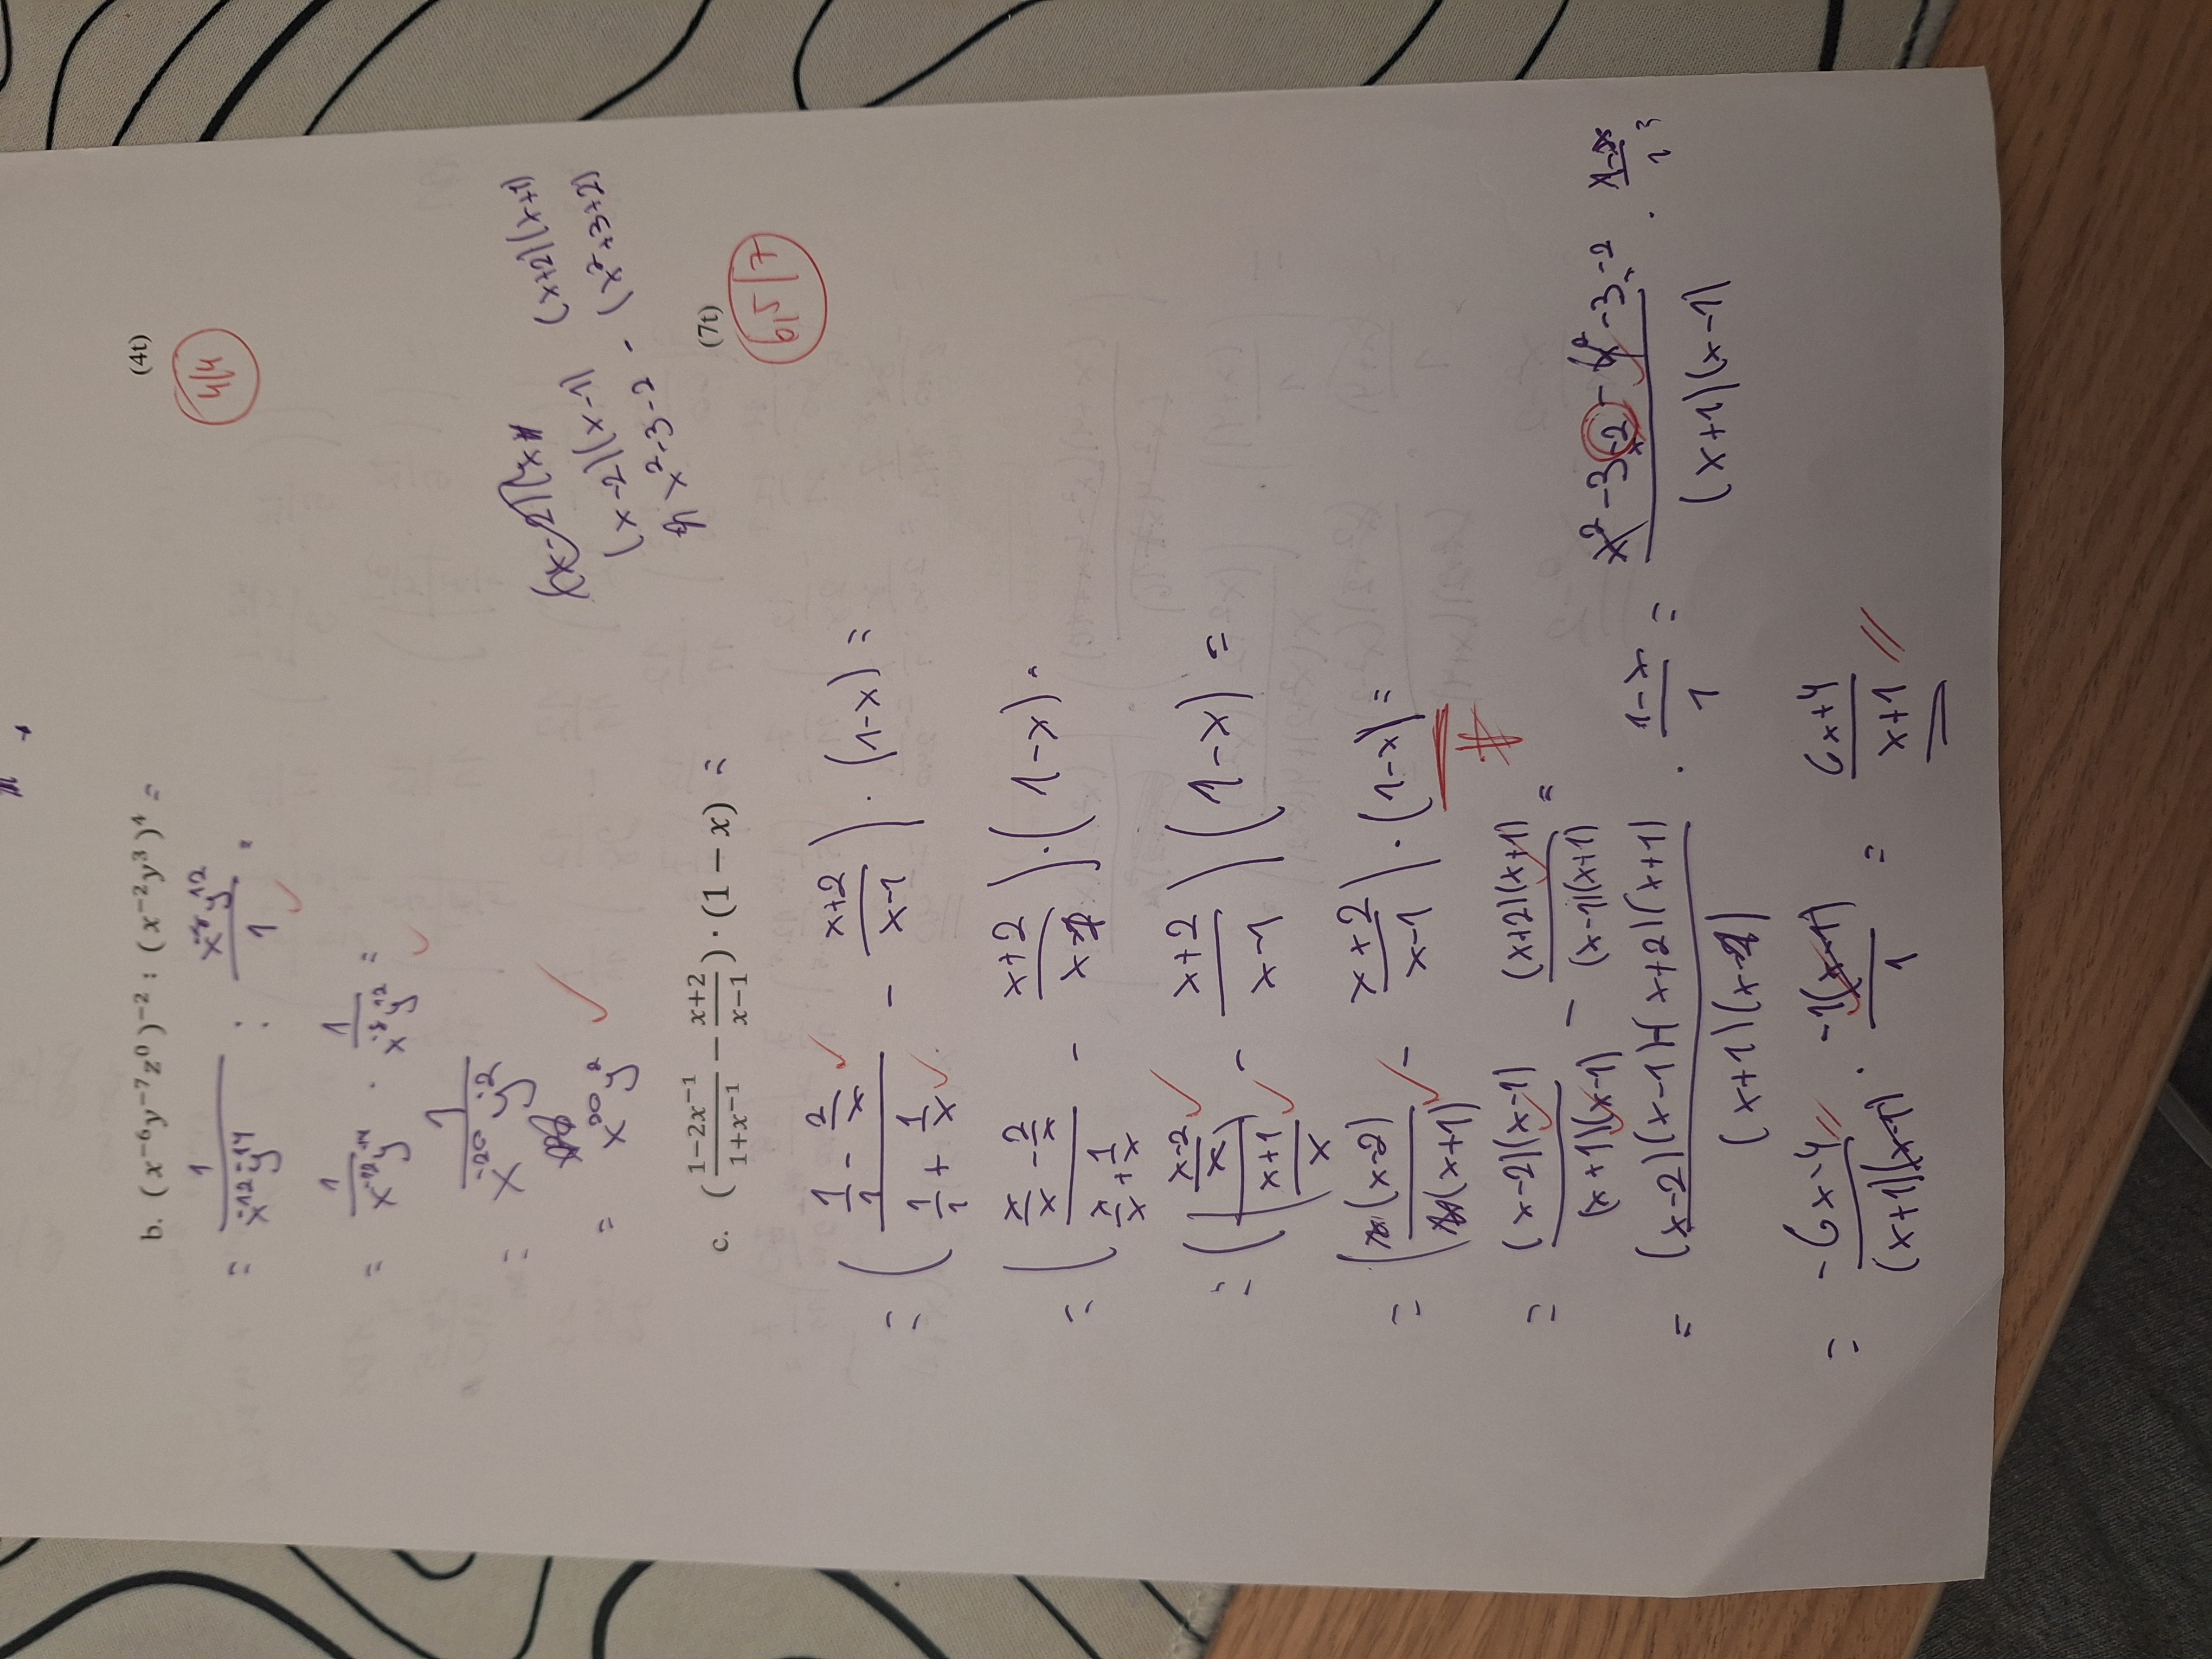 b. (x⁻⁶y⁻⁷z⁰)⁻² : (x⁻²y³)⁴ =
(4t)
4/4
= 1/(x⁻¹²y⁻¹⁴) : (x⁻⁸y¹²)/1 =
= 1/(x⁻¹²y⁻¹⁴) · 1/(x⁻⁸y¹²) =
= 1/(x⁻²⁰y⁻²)
= x²⁰y²
(x-2)(x-1) (x+2)(x+1)
x²-3-2 - (x²+3+2)
c. ((1−2x⁻¹)/(1+x⁻¹) − (x+2)/(x−1)) · (1 − x) =
(7t)
6,5/7
= ((1/1 - 2/x)/(1/1 + 1/x) - (x+2)/(x-1)) · (1-x) =
= ((x/x - 2/x)/(x/x + 1/x) - (x+2)/(x-1)) · (1-x) =
= (((x-2)/x)/((x+1)/x) - (x+2)/(x-1)) (1-x) =
= (x(x-2)/x(x+1) - (x+2)/(x-1)) · (1-x) =
= (x-2)(x-1)/(x+1)(x-1) - (x+2)(x+1)/(x-1)(x+1) =
= ((x-2)(x-1)-(x+2)(x+1))/(x+1)(x-1) · (1-x)/1 = (x²-3-2-x²-3-2)/(x+1)(x-1) · (1-x)/1
= (-6x-4)/(x+1)(x-1) · -1(x-1)/1 = (6x+4)/(x+1)